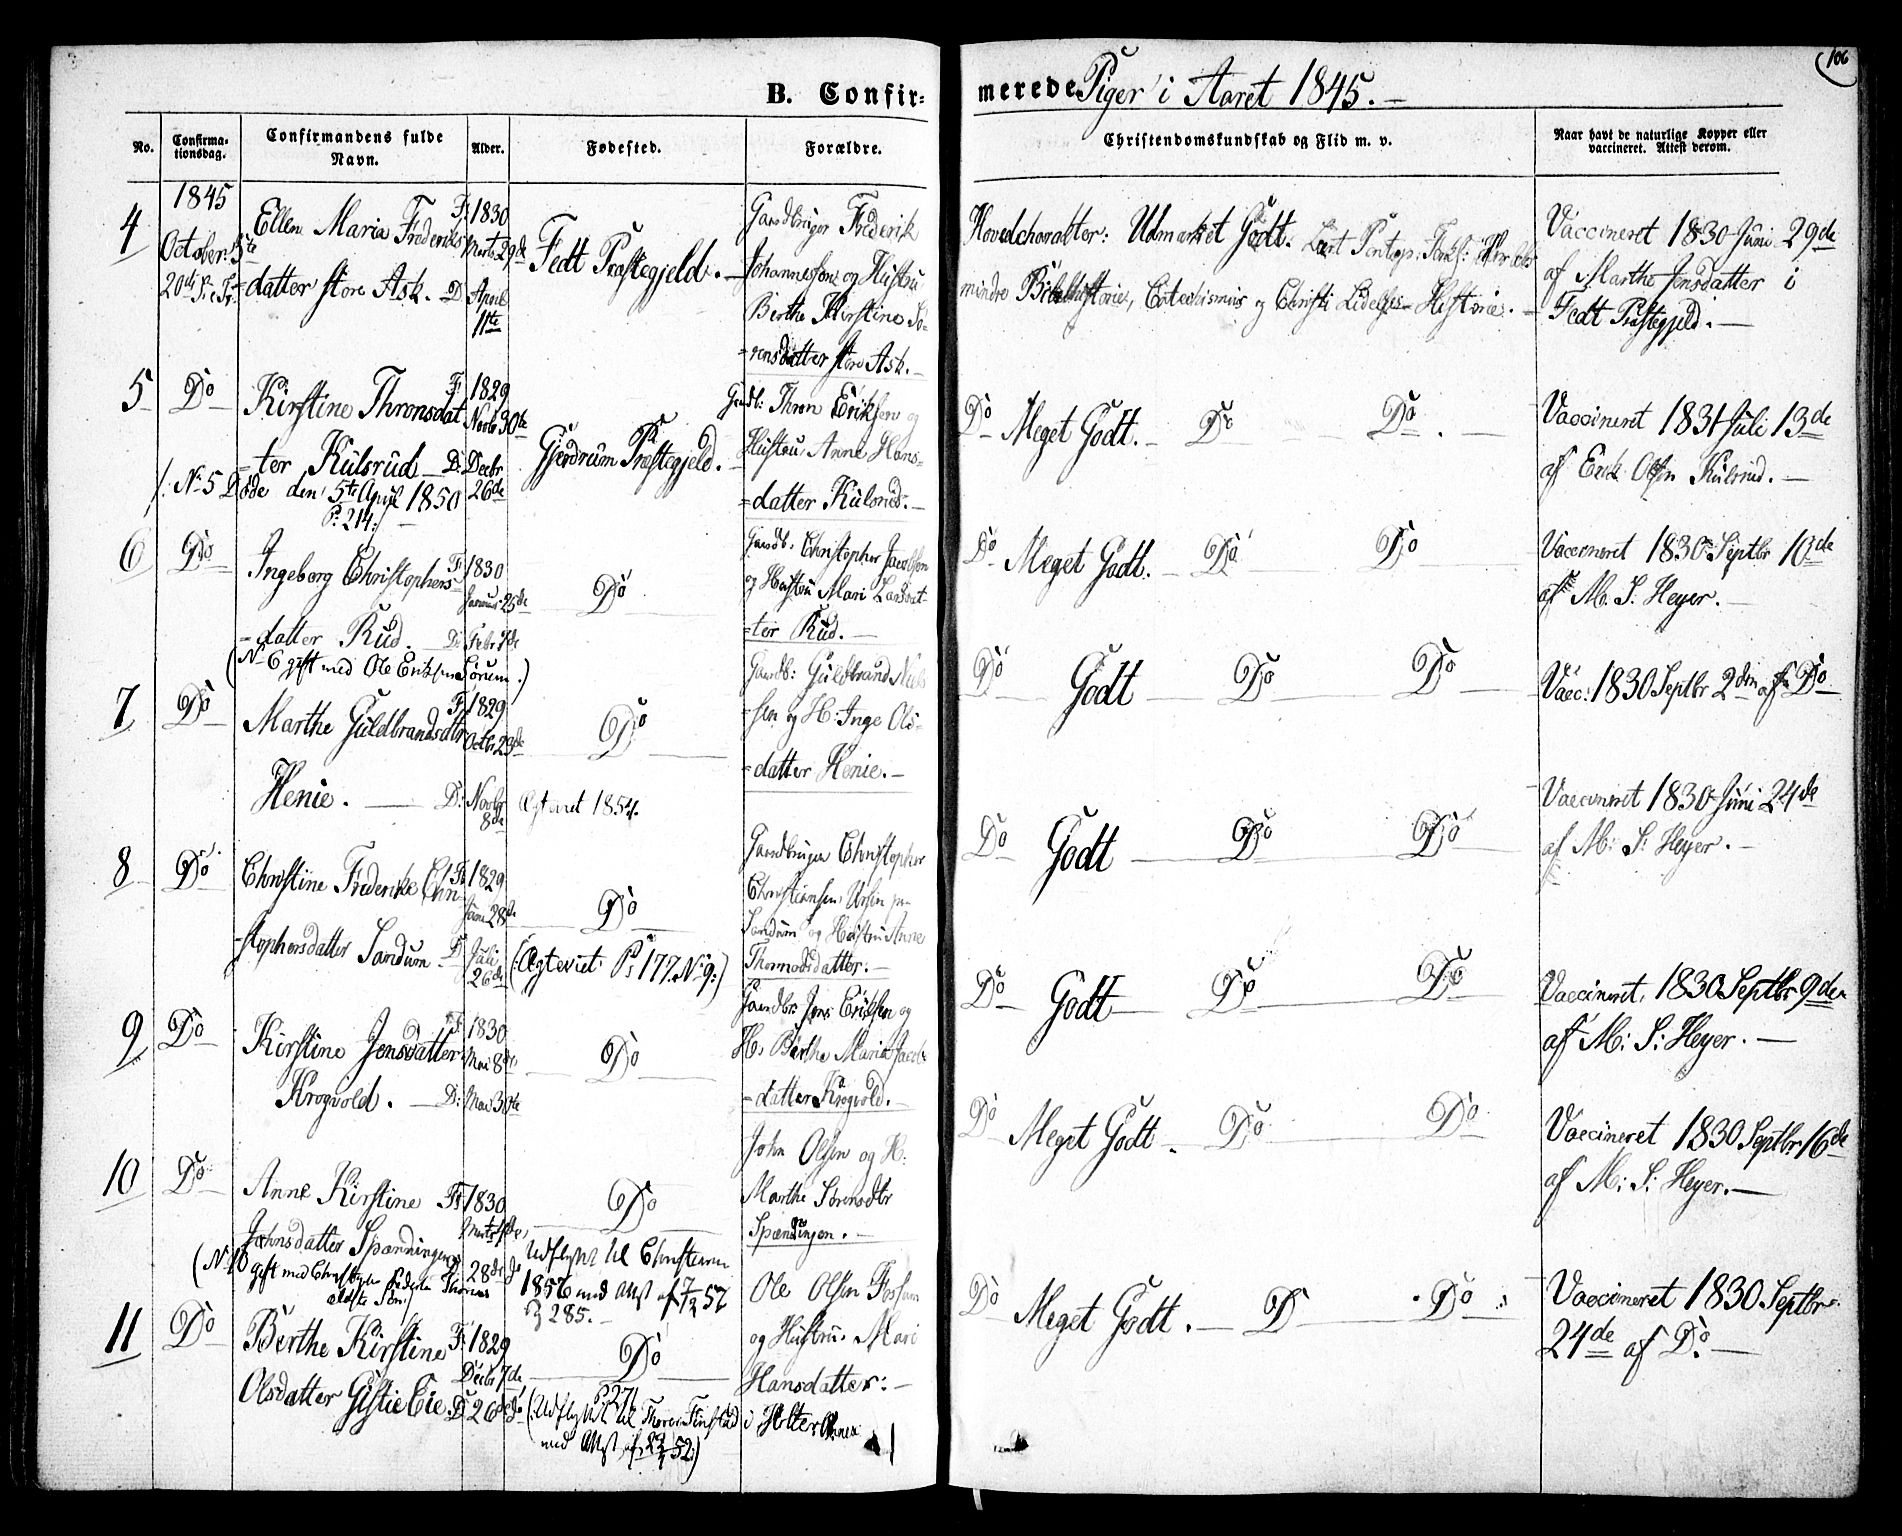 106
B. Confirmerede Piger i Aaret 1845.
No.
Confirmationsdag.
Confirmandens fulde Navn.
Alder.
Fødested.
Forældre.
Christendomskundskab og Flid m. v.
Naar havt de naturlige Kopper eller vaccineret. Attest derom.
1845
4
October 5te
Ellen Maria Frederiks
=datter store Ask. D.
F: 1830
Marts 29de
April
11te
Fedt Præstegjeld.
Gaardbruger Frederik
Johannesen og Hustru
Berthe Kirstine Sø-
=rensdatter store Ask.
Hovedcharakter: Udmærket Godt.
mindre Bibelhistorie, Catechismus og Christi Lidelses-Historie.
Vaccineret 1830 Juni 29de
af Marthe Jensdatter i
Fedt Præstegjeld.
5
Do
Kirstine Thronsdat
=ter Kulsrud D:
F: 1829
Novbr 30te
Decbr
26de
(: No 5 Døde den 5te April 1850
P. 214:)
Gjerdrum Præstegjeld.
Gaardb: Thron Eriksen og
Hustru Anne Hans-
=datter Kulsrud.
Do Meget Godt. Do Do
Vaccineret 1831 Juli 13de
af Erik Olsen Kulsrud.
6
Do
Ingeborg Christophers
=datter Rud. D:
F: 1830
Januar 25de
Febr 7de
(No 6 gift med Ole Eriksen Sørum.)
Do
Gaardb. Christopher Jacobsen
og Hustru Mari Larsdat-
=ter Rud.
Do Meget Godt. Do Do
Vaccineret 1830 Septbr 10de
af M. S. Heyer.
7
Do
Marthe Guldbrandsdtr
Henie. D:
F: 1829
Octbr 23de
Novbr
8de
Do
Ægteviet 1854.
Gaardb: Guldbrand Niels
=sen og H: Inge Ols-
=datter Henie.
Do Godt Do Do
Vacc: 1830 Septbr 2den af Do
8
Do
Christine Frederikke Chri
=stophersdatter Sandum D
F: 1829
Juni 28de
Juli
26de
Do
(: Ægteviet P: 177. No 9:)
Gaardbruger Christopher
Christiansen
Sandum og Hustru Anne
Thomasdatter.
Do Godt Do Do
Vaccineret 1830 Juni 24de
af M: S: Heyer.
9
Do
Kirstine Jensdatter
Krogvold. D:
F: 1830
Mai 8de
Mai 30te
Do
Gaardbr: Jens Eriksen og
H: Berthe Maria Jacobs
=datter Krogvold.
Do Godt Do Do
Vaccineret 1830 Septbr 9de
af M: S: Heyer.
10
Do
Anne Kirstine
Johnsdatter Spænningen
F: 1830
Marts
28de
(No 10
gift med
ældste Søn)
Do
Udflyttet til Christiania
1856 med Attest af
P. 285.
John Olsen og H:
Marthe Sørensdtr
Spænningen.
Do Meget Godt. Do Do
Vaccineret 1830 Septbr 16de
af M: S: Heyer.
11
Do
Berthe Kirstine
Olsdatter
F: 1829
Decbr 7de
D 26de
Do
P: 271
(: Udflyttet til Finstad i Holter Annex
med Attest af 52:)
Ole Olsen
og Hustru Mari
Hansdatter:
Do Meget Godt. D Do
Vaccineret 1830 Septbr
24de af Do